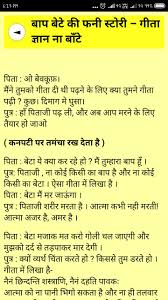 बाप बेटे की फनी स्टोरी – गीता
ज्ञान ना बाँटे
पिता : ओ बेवकूफ़।
मैंने तुमको गीता दी थी पढ़ने के लिए क्या तुमने गीता
पढ़ी ? कुछ। दिमाग मे घुसा।
पुत्र : हाँ पिताजी पढ़ ली, और अब आप मरने के लिए
तैयार हो जाओ
( कनपटी पर तमंचा रख देता है )
पिता : बेटा ये क्या कर रहे हो ? मैं तुम्हारा बाप हूँ ।
पुत्र : पिताजी , ना कोई किसी का बाप है और ना कोई
किसी का बेटा । ऐसा गीता में लिखा है ।
पिता : बेटा मैं मर जाऊंगा ।
पुत्र : पिताजी शरीर मरता है । आत्मा कभी नही मरती!
आत्मा अजर है, अमर है ।
पिता : बेटा मजाक मत करो गोली चल जाएगी और
मुझको दर्द से तड़पाकर मार देगी ।
पुत्र : क्यों व्यर्थ चिंता करते हो ? किससे तुम डरते हो ।
गीता में लिखा है-
नैनं छिन्दन्ति शस्त्राणि, नैनं दहति पावकः
आत्मा को ना पानी भिगो सकता है और ना ही तलवार